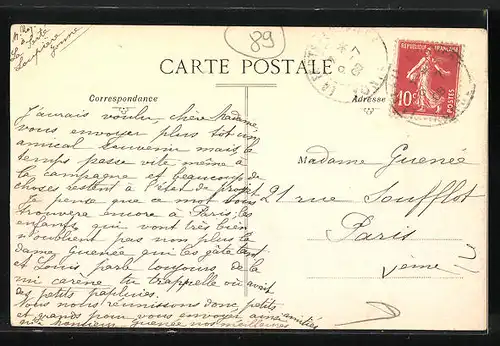 89
CARTE POSTALE
RÉPUBLIQUE FRANÇAISE
10c
POSTES
Correspondance
Adresse
J'aurais voulu, chère Madame,
vous envoyer plus tôt un
amical souvenir mais le
temps passe vite même à
la campagne et beaucoup de
choses restent à l'état de projet
Je pense que ce mot vous
trouvera encore à Paris; les
enfants qui vont très bien
n'oublient pas non plus la
dame Guenée qui les gâte tant
et Louis parle toujours de la
mi carême, tu t'rappelle où avait
des petits papluies.
Nous nous réunissons donc petits
et grands pour vous envoyer ainsi
qu'à monsieur Guenée nos meilleures
amitiés
Madame Guenée
21 rue Soufflot
Paris
Vème